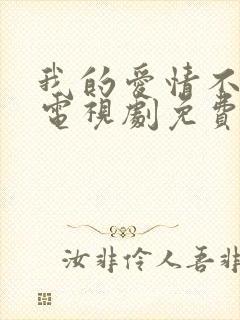 我的愛情不
電視劇免費
汝非伶人吾非